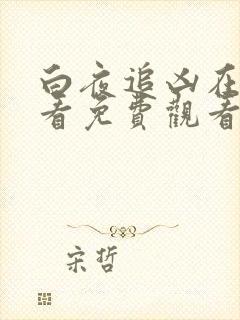 白夜追凶在
看免費觀看
宋哲